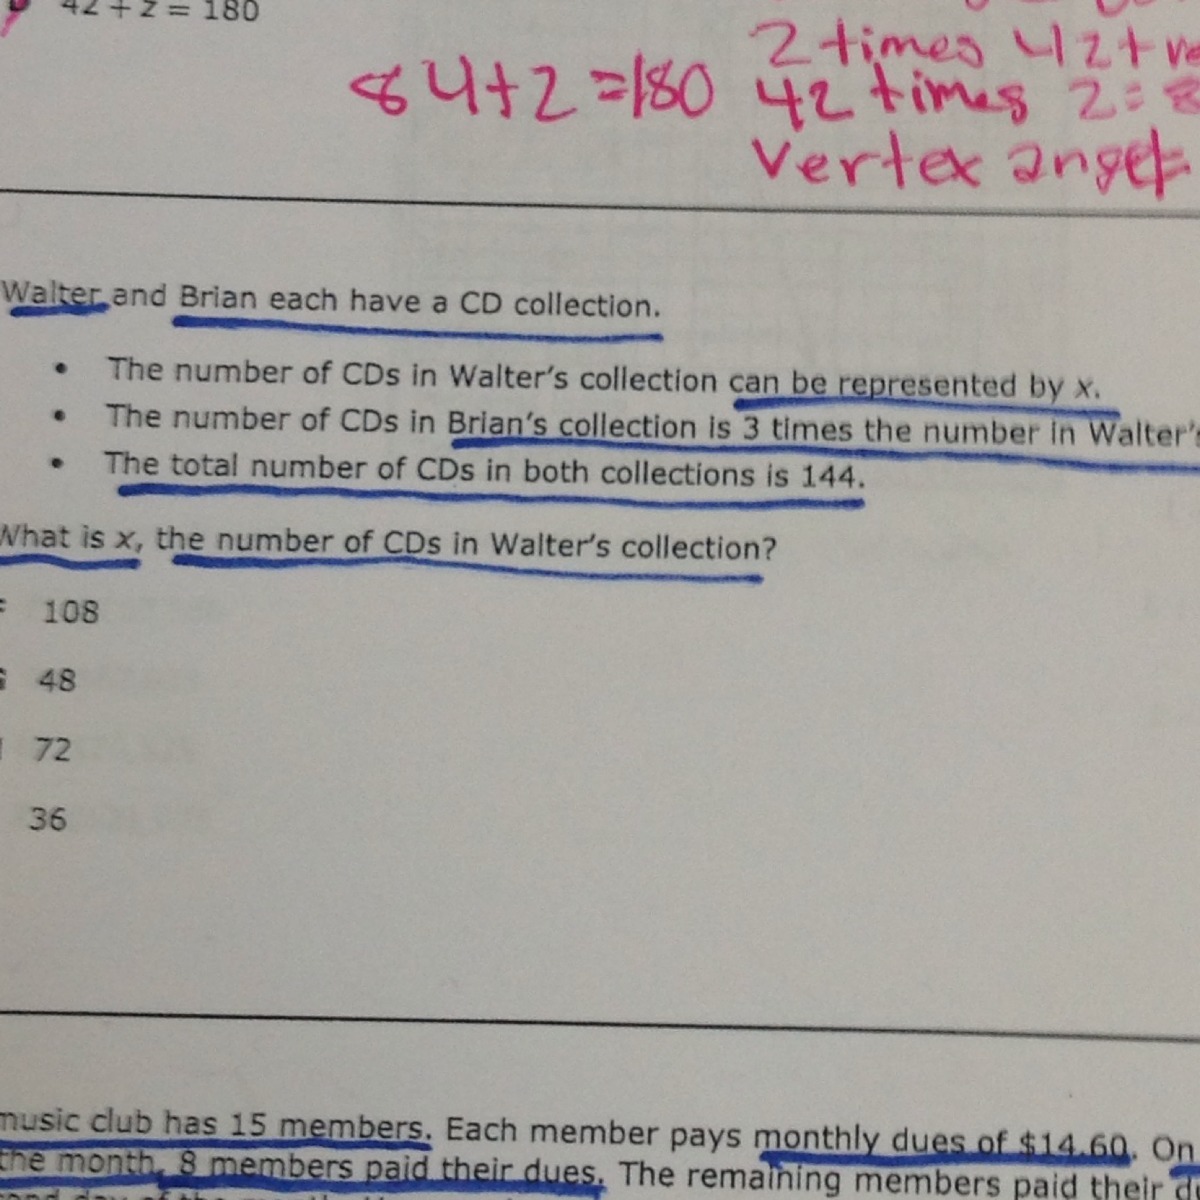 42 + z = 180
84+z=180
2 times 42+
42 times 2=
Vertex angel=
Walter and Brian each have a CD collection.
• The number of CDs in Walter's collection can be represented by x.
• The number of CDs in Brian's collection is 3 times the number in Walter's
• The total number of CDs in both collections is 144.
What is x, the number of CDs in Walter's collection?
108
48
72
36
music club has 15 members. Each member pays monthly dues of $14.60. On
the month, 8 members paid their dues. The remaining members paid their
day of the month.